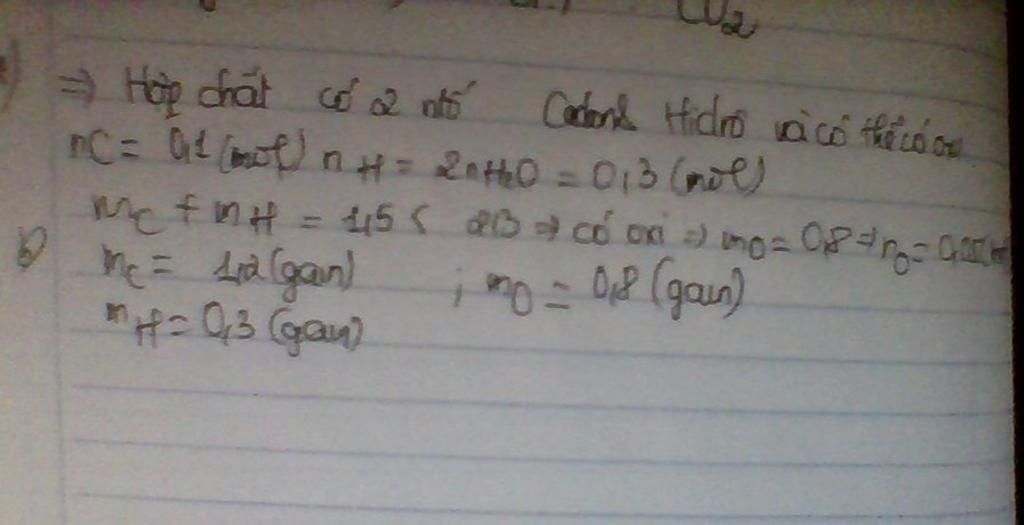 CO2
a) => Hợp chất có 2 ntố Cacbon & Hidro và có thể có oxi
nC = 0,1 (mol) nH = 2nH2O = 0,3 (mol)
mC + mH = 1,5 < 2,3 => có oxi => mO = 0,8 => nO = 0,05(mol)
b) mC = 1,2 (gam) ; mO = 0,8 (gam)
mH = 0,3 (gam)